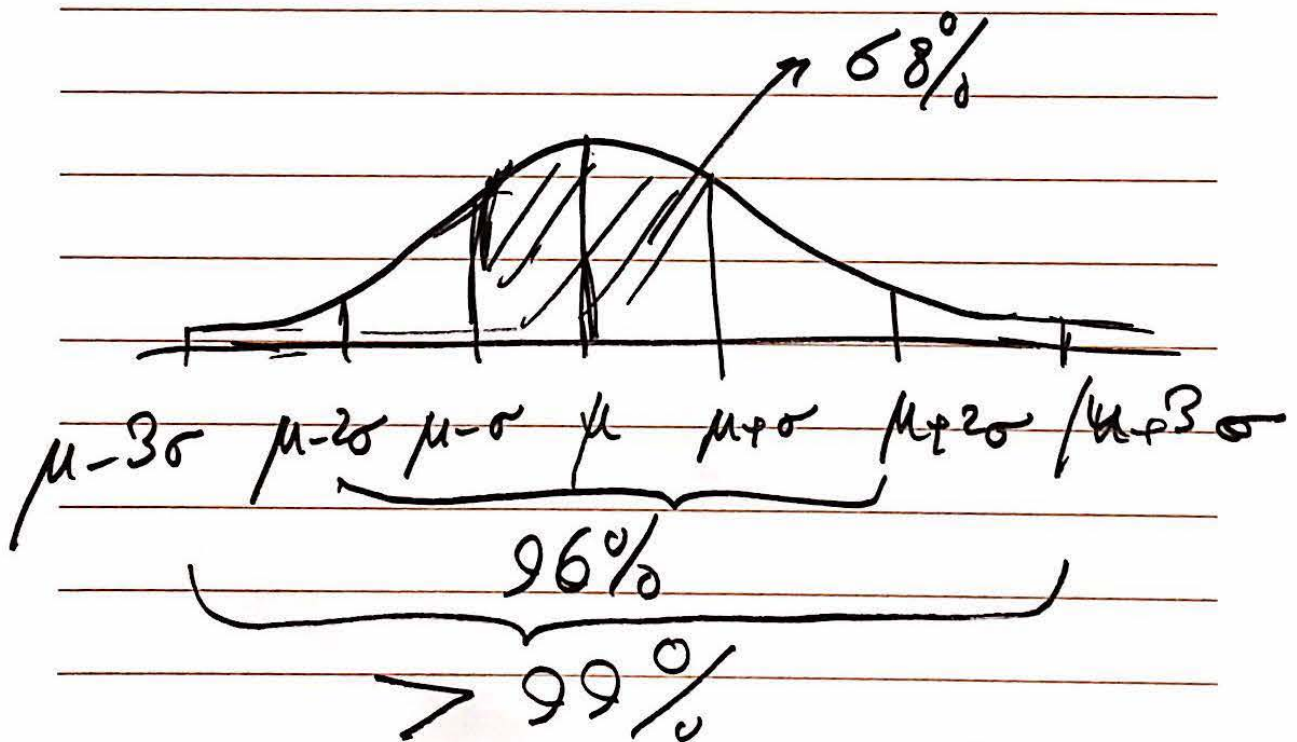 68%
μ-3σ μ-2σ μ-σ μ μ+σ μ+2σ μ+3σ
96%
> 99%